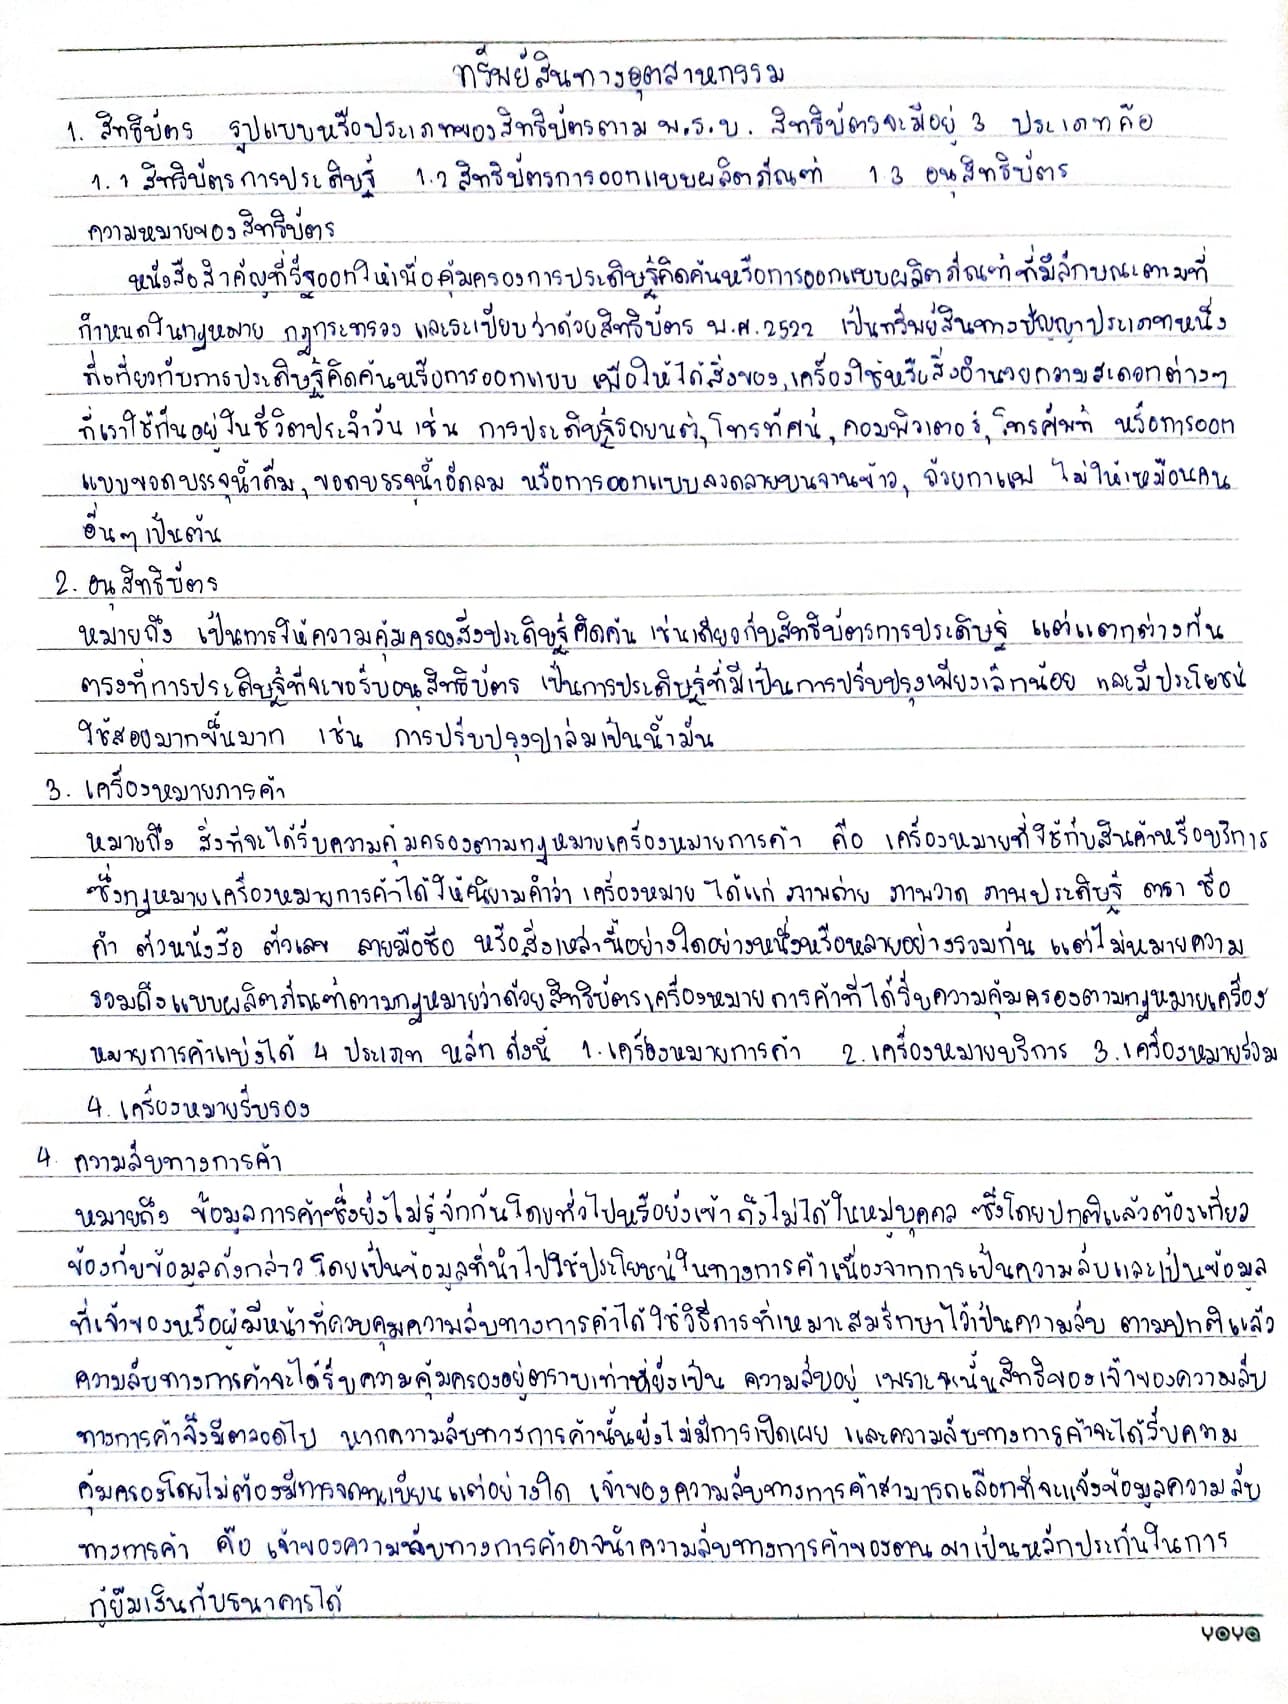 ทรัพย์สินทางอุตสาหกรรม
1. สิทธิบัตร รูปแบบหรือประเภทของสิทธิบัตรตาม พ.ร.บ. สิทธิบัตรจะมีอยู่ 3 ประเภทคือ
1.1 สิทธิบัตรการประดิษฐ์ 1.2 สิทธิบัตรการออกแบบผลิตภัณฑ์ 1.3 อนุสิทธิบัตร
ความหมายของสิทธิบัตร
หนังสือสำคัญที่รัฐออกให้เพื่อคุ้มครองการประดิษฐ์คิดค้นหรือการออกแบบผลิตภัณฑ์ที่มีลักษณะตามที่
กำหนดในกฎหมาย กฎกระทรวง และระเบียบว่าด้วยสิทธิบัตร พ.ศ.2522 เป็นทรัพย์สินทางปัญญาประเภทหนึ่ง
ที่เกี่ยวกับการประดิษฐ์คิดค้นหรือการออกแบบ เพื่อให้ได้สิ่งของ,เครื่องใช้หรือสิ่งอำนวยความสะดวกต่างๆ
ที่เราใช้กันอยู่ในชีวิตประจำวัน เช่น การประดิษฐ์รถยนต์,โทรทัศน์,คอมพิวเตอร์,โทรศัพท์ หรือการออก
แบบขวดบรรจุน้ำดื่ม,ขวดบรรจุน้ำอัดลม หรือการออกแบบลวดลายบนจานข้าว,ถ้วยกาแฟ ไม่ให้เหมือนคน
อื่นๆ เป็นต้น
2. อนุสิทธิบัตร
หมายถึง เป็นการให้ความคุ้มครองสิ่งประดิษฐ์คิดค้น เช่นเดียวกับสิทธิบัตรการประดิษฐ์ แต่แตกต่างกัน
ตรงที่การประดิษฐ์ที่จะขอรับอนุสิทธิบัตร เป็นการประดิษฐ์ที่มีเป็นการปรับปรุงเพียงเล็กน้อย และมีประโยชน์
ใช้สอยมากขึ้นมาก เช่น การปรับปรุงปาล์มเป็นน้ำมัน
3. เครื่องหมายการค้า
หมายถึง สิ่งที่จะได้รับความคุ้มครองตามกฎหมายเครื่องหมายการค้า คือ เครื่องหมายที่ใช้กับสินค้าหรือบริการ
ซึ่งกฎหมายเครื่องหมายการค้าได้ให้นิยามคำว่า เครื่องหมาย ได้แก่ ภาพถ่าย ภาพวาด ภาพประดิษฐ์ ตรา ชื่อ
คำ ตัวหนังสือ ตัวเลข ลายมือชื่อ หรือสิ่งเหล่านี้อย่างใดอย่างหนึ่งหรือหลายอย่างรวมกัน แต่ไม่หมายความ
รวมถึงแบบผลิตภัณฑ์ตามกฎหมายว่าด้วยสิทธิบัตรเครื่องหมายการค้าที่ได้รับความคุ้มครองตามกฎหมายเครื่อง
หมายการค้าแบ่งได้ 4 ประเภท หลัก ดังนี้ 1.เครื่องหมายการค้า 2.เครื่องหมายบริการ 3.เครื่องหมายร่วม
4.เครื่องหมายรับรอง
4. ความลับทางการค้า
หมายถึง ข้อมูลการค้าซึ่งยังไม่รู้จักกันโดยทั่วไปหรือยังเข้าถึงไม่ได้ในหมู่บุคคล ซึ่งโดยปกติแล้วต้องเกี่ยว
ข้องกับข้อมูลดังกล่าว โดยเป็นข้อมูลที่นำไปใช้ประโยชน์ในทางการค้าเนื่องจากการเป็นความลับและเป็นข้อมูล
ที่เจ้าของหรือผู้มีหน้าที่ควบคุมความลับทางการค้าได้ใช้วิธีการที่เหมาะสมรักษาไว้เป็นความลับ ตามปกติแล้ว
ความลับทางการค้าจะได้รับความคุ้มครองอยู่ตราบเท่าที่ยังเป็น ความลับอยู่ เพราะฉะนั้นสิทธิของเจ้าของความลับ
ทางการค้าจึงมีตลอดไป หากความลับทางการค้านั้นยังไม่มีการเปิดเผย และความลับทางการค้าจะได้รับความ
คุ้มครองโดยไม่ต้องมีการจดทะเบียนแต่อย่างใด เจ้าของความลับทางการค้าสามารถเลือกที่จะแจ้งข้อมูลความลับ
ทางการค้า คือ เจ้าของความลับทางการค้าอาจนำความลับทางการค้าของตนมาเป็นหลักประกันในการ
กู้ยืมเงินกับธนาคารได้
YOYO